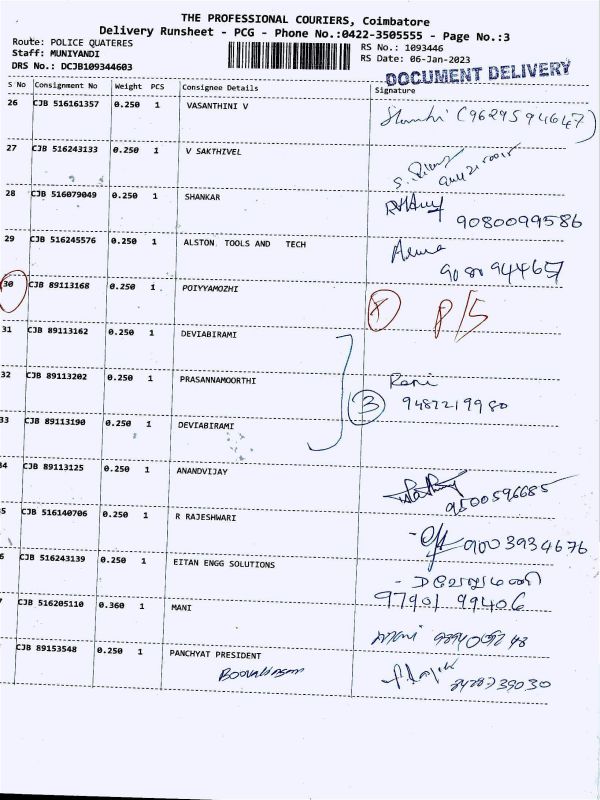 THE PROFESSIONAL COURIERS, Coimbatore
Delivery Runsheet - PCG - Phone No.:0422-3505555 - Page No.:3
Route: POLICE QUATERES
RS No.: 1093446
Staff: MUNIYANDI
RS Date: 06-Jan-2023
DRS No.: DCJB109344603
DOCUMENT DELIVERY
S No Consignment No Weight PCS Consignee Details Signature
26 CJB 516161357 0.250 1 VASANTHINI V (9629594647)
27 CJB 516243133 0.250 1 V SAKTHIVEL
28 CJB 516079049 0.250 1 SHANKAR 9080099586
29 CJB 516245576 0.250 1 ALSTON. TOOLS AND TECH
30 CJB 89113168 0.250 1 POIYYAMOZHI P/S
31 CJB 89113162 0.250 1 DEVIABIRAMI
32 CJB 89113202 0.250 1 PRASANNAMOORTHI Rani
3 9487219980
33 CJB 89113190 0.250 1 DEVIABIRAMI
34 CJB 89113125 0.250 1 ANANDVIJAY 9500596685
5 CJB 516140706 0.250 1 R RAJESHWARI 9003934676
6 CJB 516243139 0.250 1 EITAN ENGG SOLUTIONS
97901 99406
CJB 516205110 0.360 1 MANI mani
CJB 89153548 0.250 1 PANCHYAT PRESIDENT